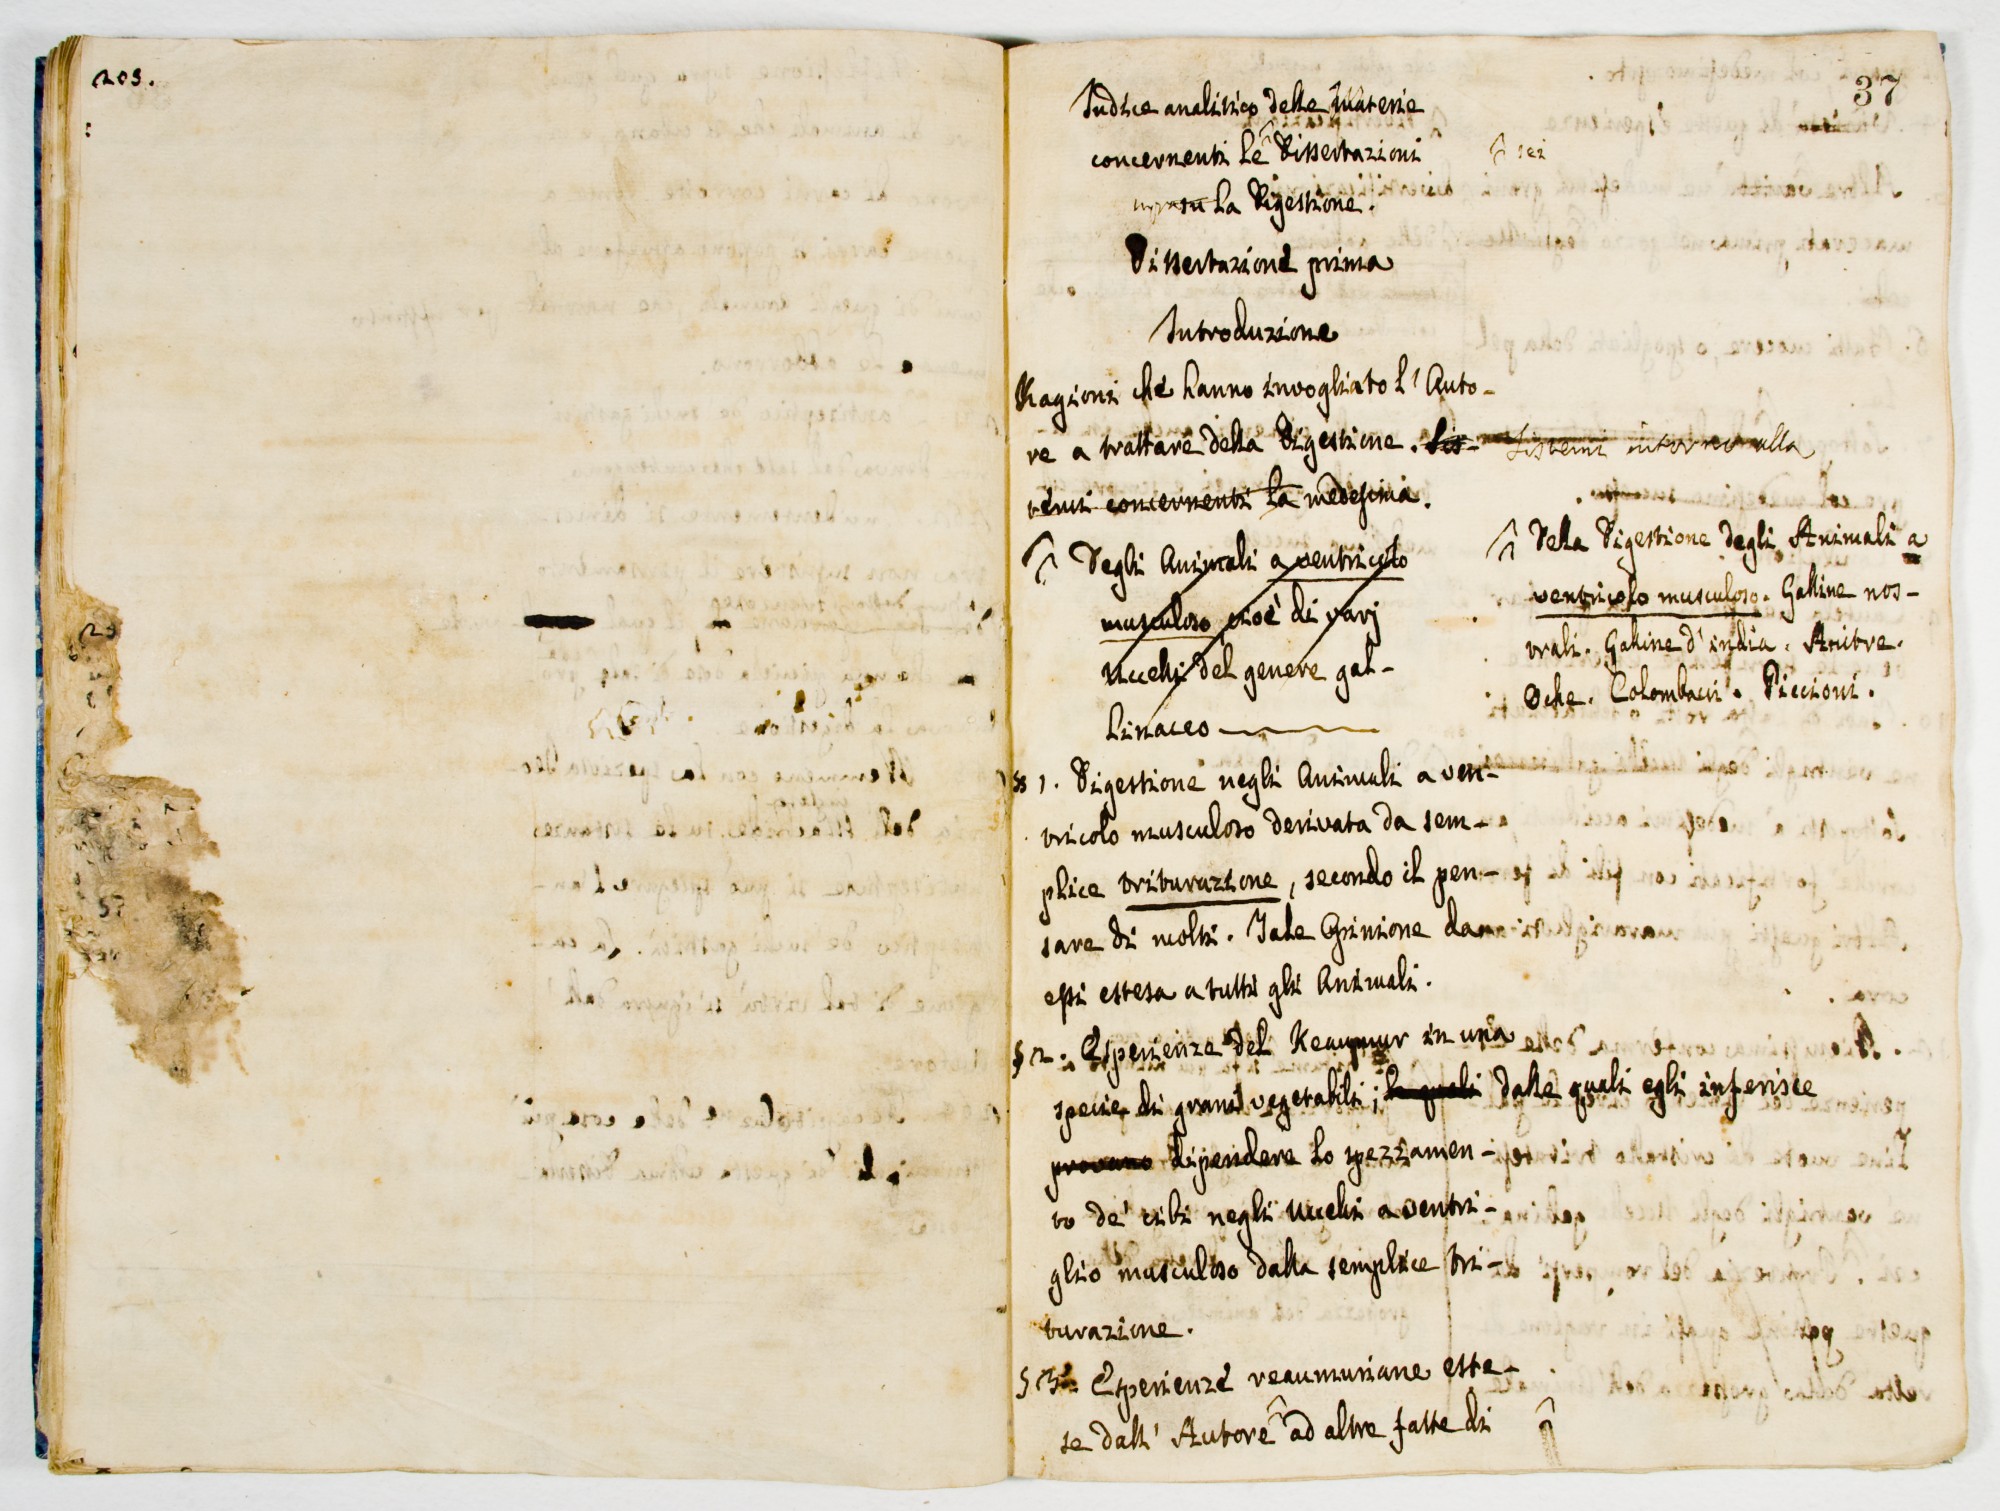 203.
37
Indice analitico delle materie
concernenti le Dissertazioni
^ sei
su la Digestione.
Dissertazione prima
Introduzione
Ragioni che hanno invogliato l'Auto-
re a trattare della Digestione. Sis-
Sistemi intorno alla
temi concernenti la medesima.
Degli Animali a ventricolo
musculoso cioè di varj
Uccelli del genere gal-
linaceo
Della Digestione degli Animali a
ventricolo musculoso. Galline nos-
trali. Galline d'india. Anitre.
Oche. Colombacci. Piccioni.
§ 1. Digestione negli Animali a ven-
tricolo musculoso derivata da sem-
plice triturazione, secondo il pen-
sare di molti. Tale Opinione da
essi estesa a tutti gli Animali.
§ 2. Esperienze del Reaumur in una
specie di grani vegetabili; le quali dalle quali egli inferisce
provano dipendere lo spezzamen-
to de' cibi negli Uccelli a ventri-
glio musculoso dalla semplice tri-
turazione.
§ 3. Esperienze reaumuriane este-
se dall' Autore ad altre fatte di